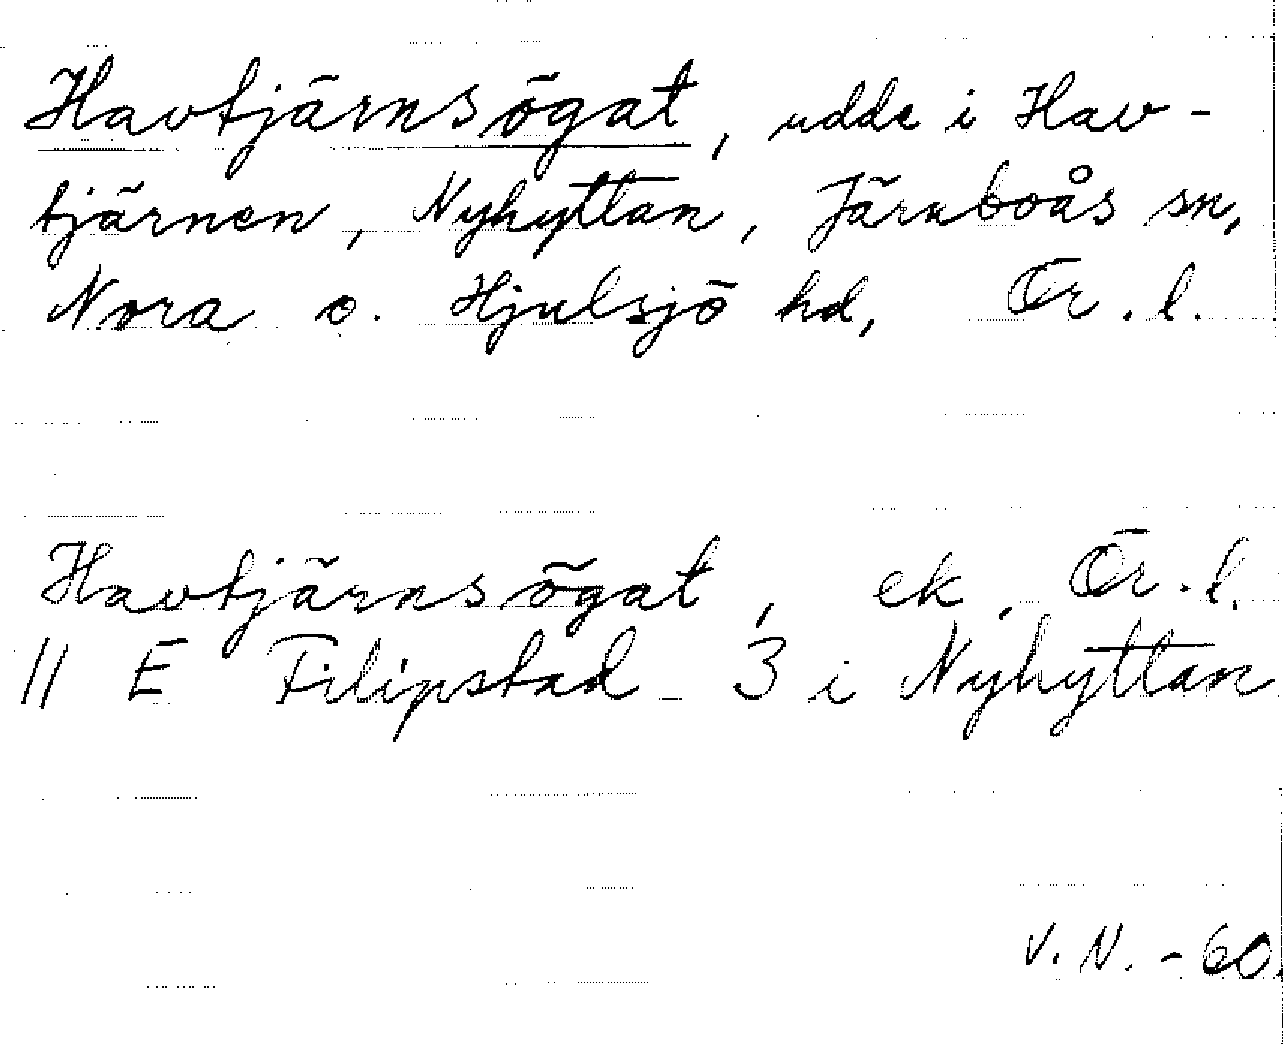 Havtjärnsögat, udde i Hav-
tjärnen, Nyhyttan, Järnboås sn,
Nora o. Hjulsjö hd, Ör. l.
Havtjärnsögat, ek, Ör. l.
11 E Filipstad 3 i Nyhyttan
V. N. - 60.